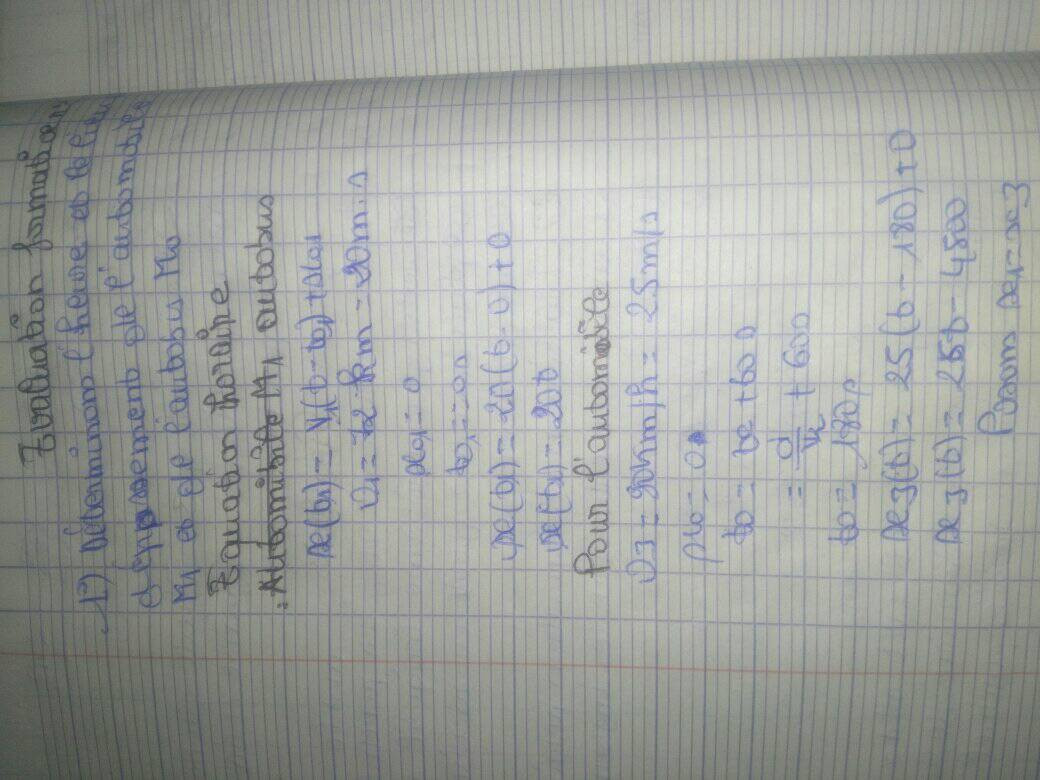 Evaluation formative
1°) Déterminons l'heure et le lieu
dépassement de l'automobile
M1 et de l'autobus M10
Equation horaire
: Automobile M1 autobus
x(t1) = V1(t - t01) + x01
V1 = 72 km = 20m.s
x01 = 0
t01 = 0s
x(t1) = 20(t-0)+0
x(t1) = 20t
Pour l'automobile
V3 = 90km/h = 25m/s
x0 = 0
t0 = te + 60s
= d/V2 + 60s
t0 = 180s
x3(t) = 25(t - 180) + 0
x3(t) = 25t - 4500
Posons x1 = x3